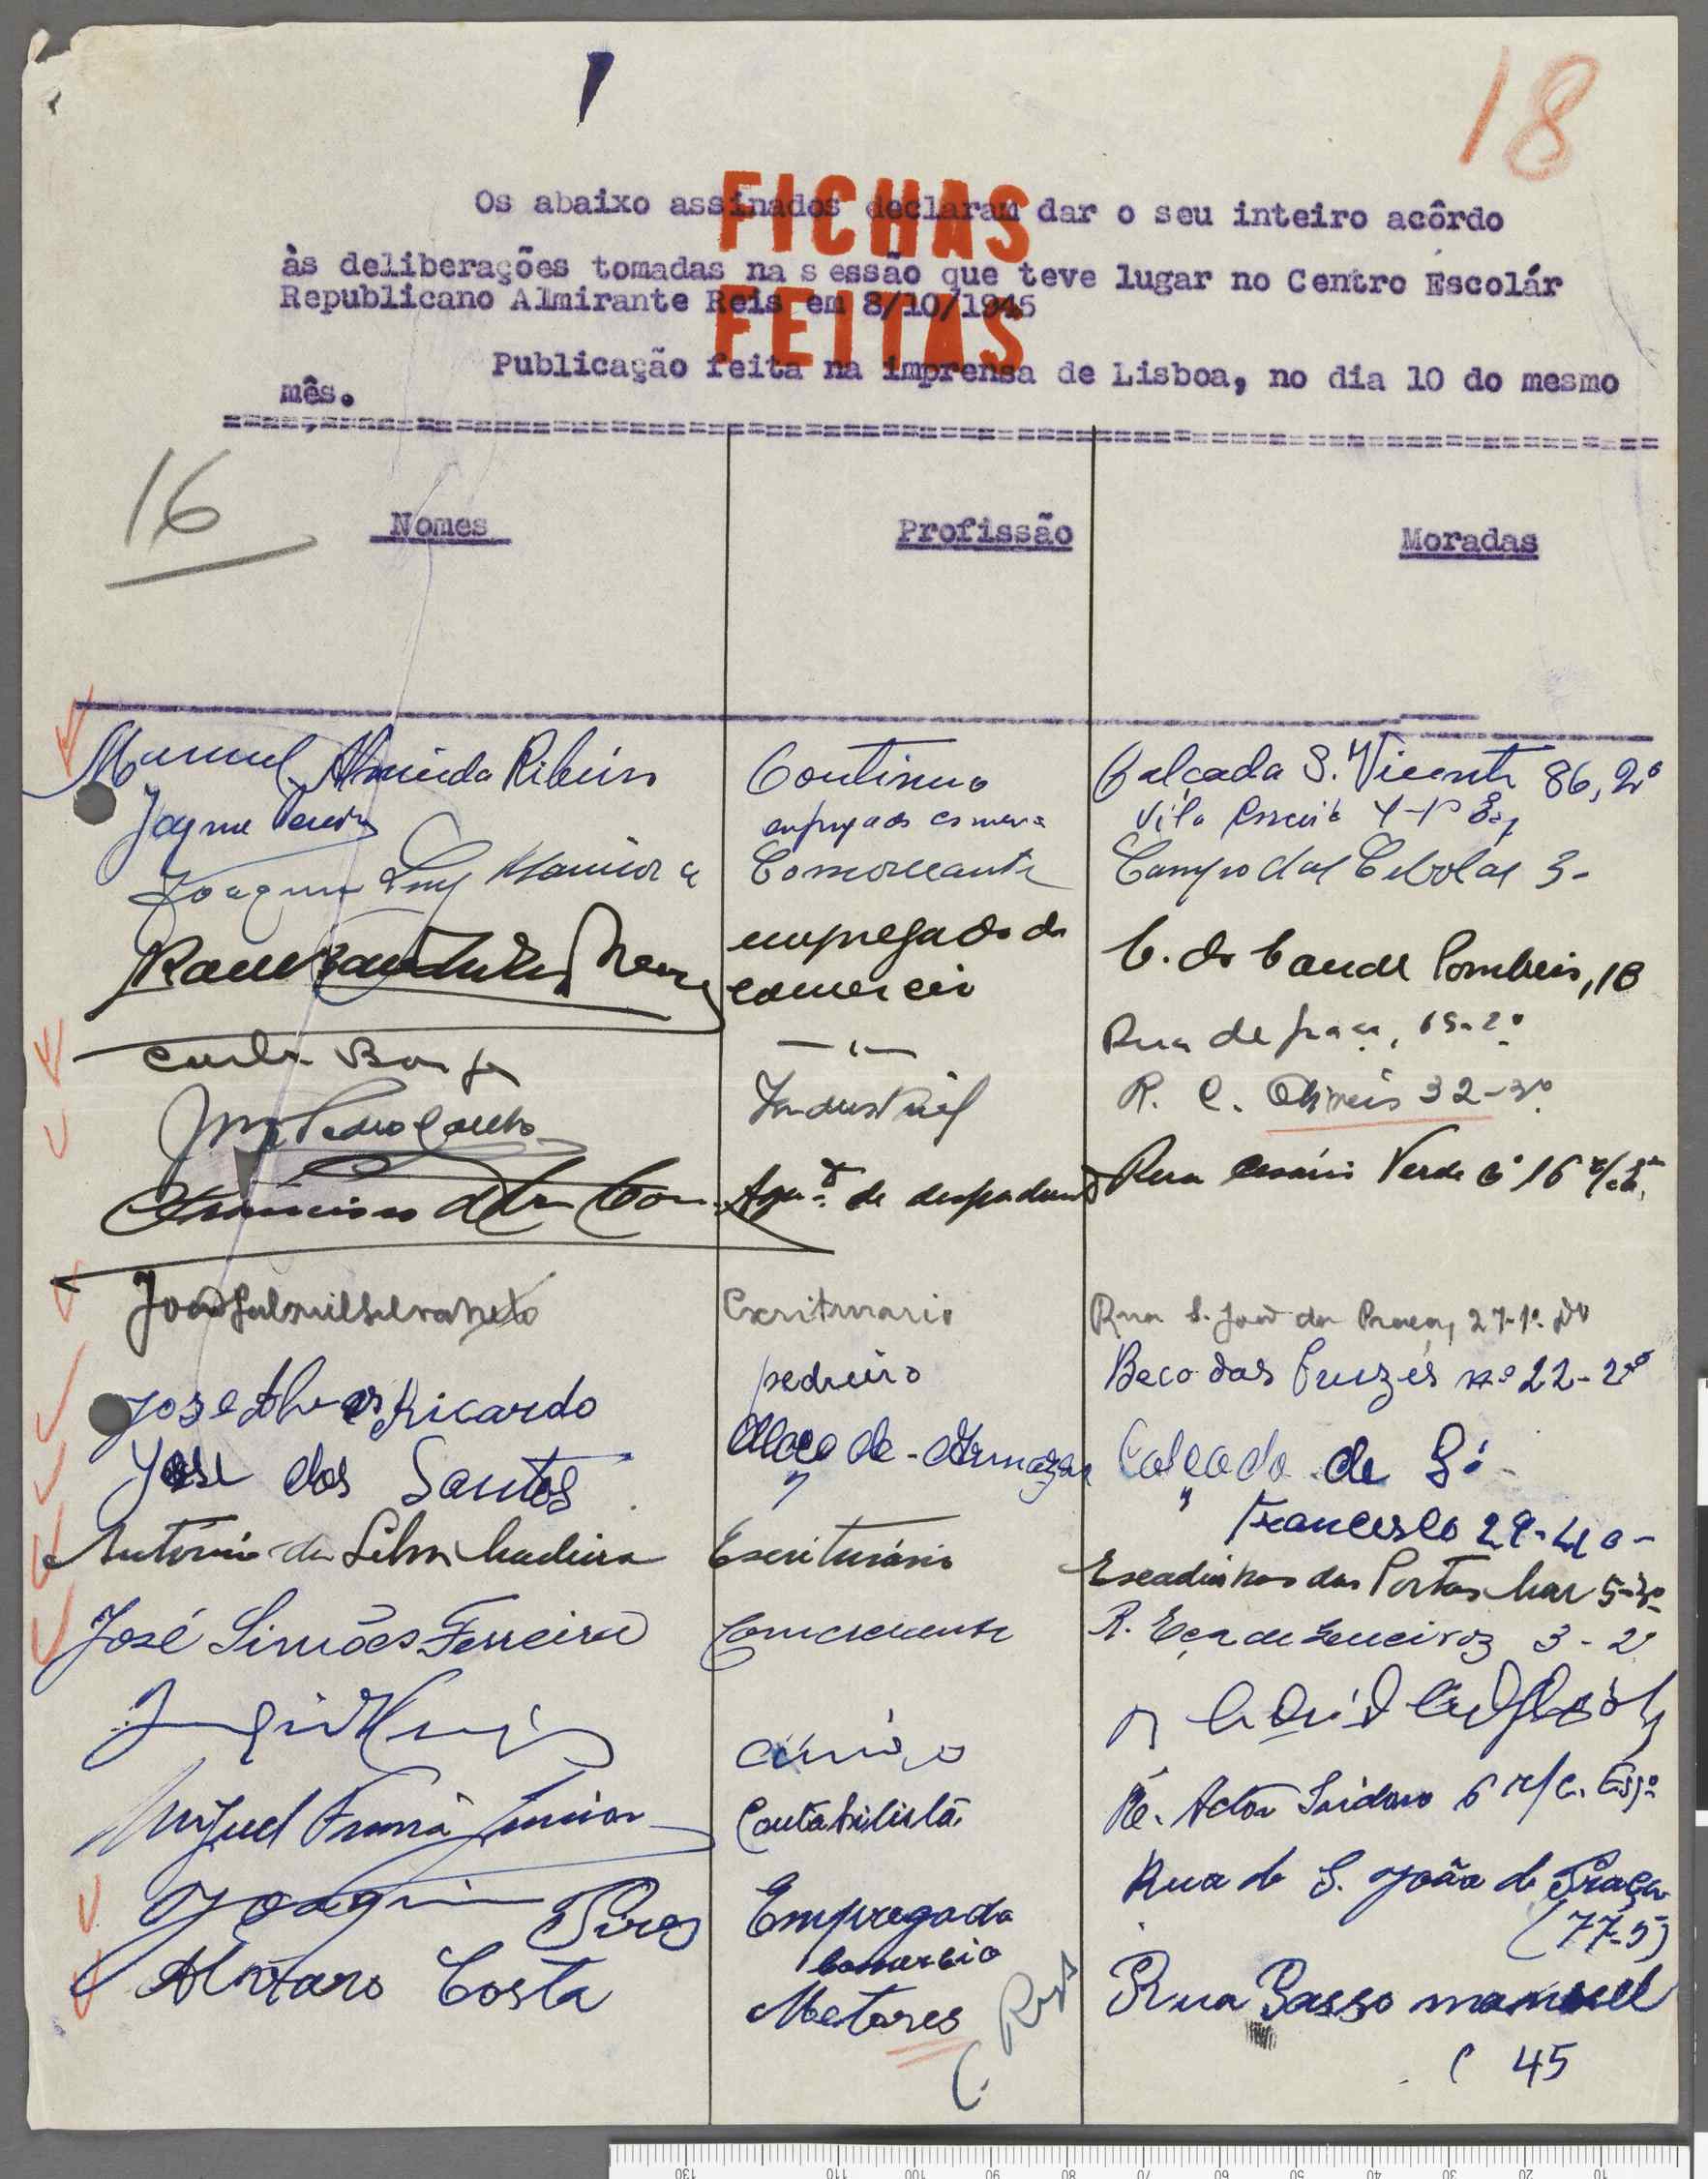 18
Os abaixo assinados declaram dar o seu inteiro acôrdo
às deliberações tomadas na sessão que teve lugar no Centro Escolár
Republicano Almirante Reis em 8/10/1945
FICHAS
FEITAS
Publicação feita na imprensa de Lisboa, no dia 10 do mesmo
mês.
16
Nomes Profissão Moradas
Manuel Almeida Ribeiro Contínuo Calçada S. Vicente 86, 2º
Jayme Vila
Joaquim Comerciante Campo das Cebolas 3-
empregado do
comercio
C. do Conde Pombeiro, 18
Rua da Graça, 65-2º
Pedro Industrial R. C. 32-3º
de despachante Rua Cesário Verde 16 r/c
João Gabriel Silva Neto Escriturario Rua S. João da Praça, 27-1º Dto
José Alves Ricardo pedreiro Beco das Cruzes nº 22-2º
José dos Santos Moço de Armazem Calçada de S.
Francisco 29-4º-
António da Silva Madeira Escriturário Escadinhas das Portas Mar 5-3º
José Simões Ferreira Comerciante R. Eça de Queiroz 3-2º
Miguel Júnior Contabilista R. Actor Isidoro 6 r/c. Esqº
Joaquim Pires Empregado
comercio
Rua de S. João da Praça
(77-5)
Alvaro Costa Motores Rua Passo manuel
45
130 120 110 100 90 80 70 60 50 40 30 20 10